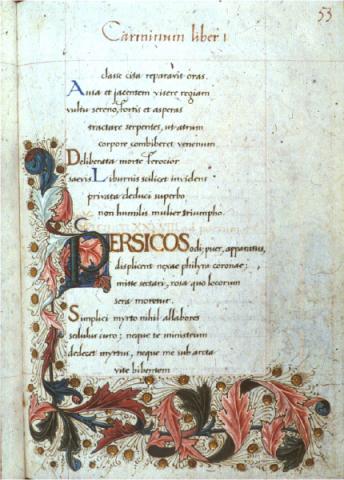 53
Carminum liber i
classe cita reparavit oras.
Ausa et jacentem visere regiam
vultu sereno, fortis et asperas
tractare serpentes, ut atrum
corpore combiberet venenum
Deliberata morte ferocior
saevis Liburnis scilicet invidens
privata deduci superbo
non humilis mulier triumpho.
PERSICOS odi, puer, apparatus,
displicent nexae philyra coronae;
mitte sectari, rosa quo locorum
sera moretur.
Simplici myrto nihil allabores
sedulus curo; neque te ministrum
dedecet myrtus, neque me sub arcta
vite bibentem